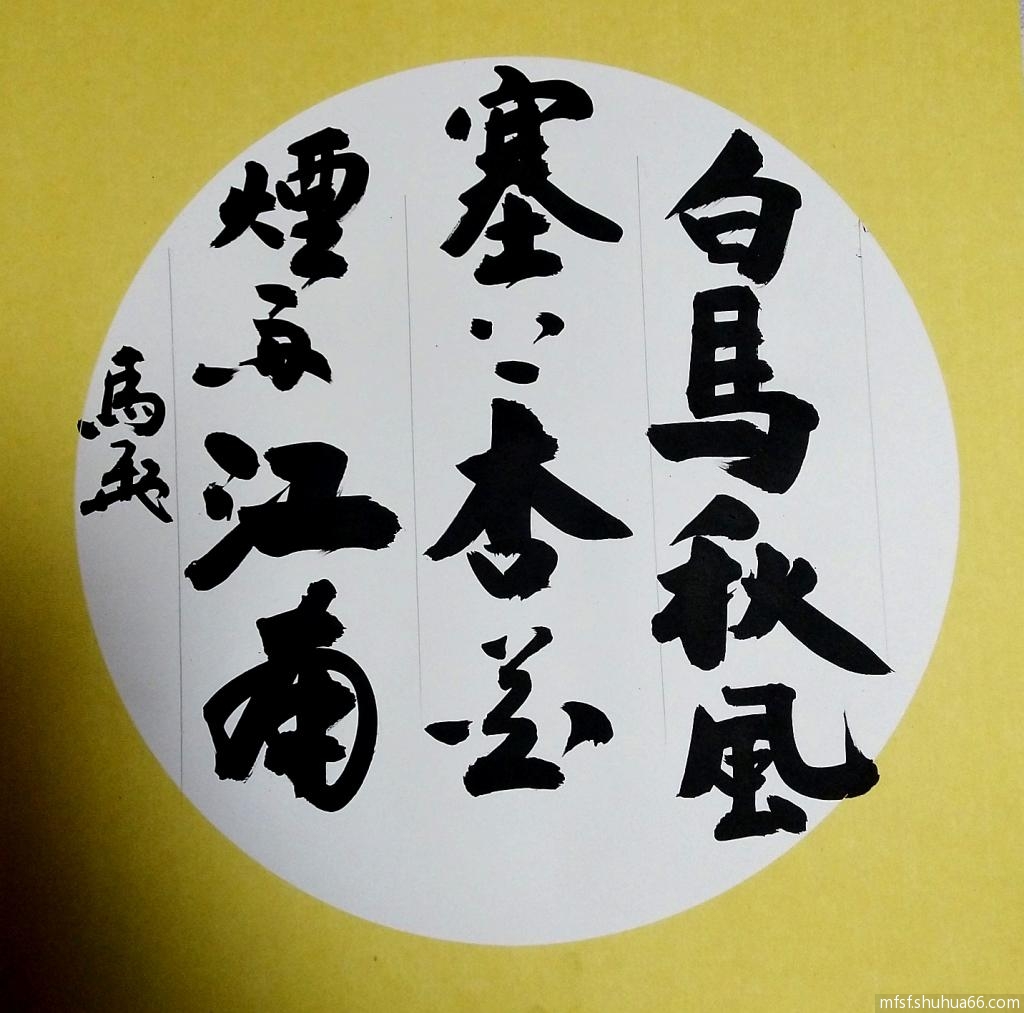 白馬秋風
塞上杏花
煙雨江南
馬
mfsf.shuhua66.com